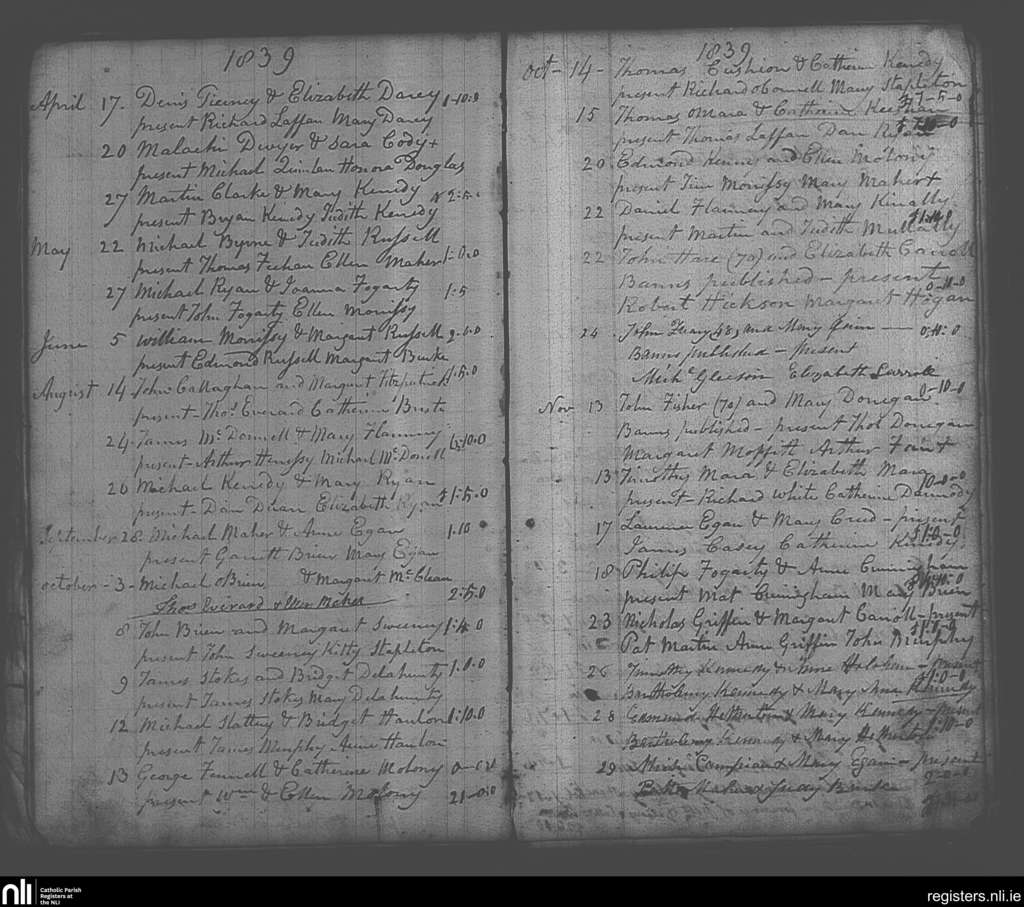 1839
April 17. Denis Tierney & Elizabeth Darcy 1-10:0
present Richard Laffan Mary Darcy
20 Malachi Dwyer & Sara Cody +
present Michael Quinlan Honora Douglas
27 Martin Clarke & Mary Kenedy
present Bryan Kenedy Judith Kenedy 2:5:
May 22 Michael Byrne & Judith Russell
present Thomas Feehan Ellen Maher 1-0:0
27 Michael Ryan & Joanna Fogarty 1:5
present John Fogarty Ellen Morrissy
June 5 William Morrissy & Margaret Russell 2-0:0
present Edmond Russell Margaret Burke
August 14 John Callaghan and Margaret Fitzpatrick 1:5:0
present Thos Everard Catherine
24. James McDonnell & Mary Flannery
present Arthur Henessy Michael McDonell :10:0
26 Michael Kenedy & Mary Ryan
present Dan Dwan Elizabeth Ryan 1:5:0
September 28. Michael Maher & Anne Egan 1.10
present Garrett Brien Mary Egan
october - 3 - Michael OBrien & Margaret McClean
Thos Everard & Ellen Maher 2:5:0
8 John Brien and Margaret Sweeney 1:4:0
present John Sweeney Kitty Stapleton
9 James Stokes and Bridget Delahunty 1.0.0
present James Stokes Mary Delahunty
12 Michael Slattery & Bridget Hanlon 1:10.0
present James Murphy Anne Hanlon
13 George Fennell & Catherine Molony
present Wm & Ellen Molony 21-0:0
1839
oct - 14 - Thomas Cushion & Catherine Kenedy
present Richard oConnell Mary Stapleton
15 Thomas Mara & Catherine
present Thomas Laffan Dan Ryan
20 Edmond Kenny and Ellen Molony
present Tim Morrissy Mary Maher +
22 Daniel Flannery and Mary Kinally
present Martin and Judith Mullally
22 John Hare (70) and Elizabeth Carroll
Banns published - present 0-10-0
Robert Hickson Margaret Hogan
24. John (48) and Mary 0,10:0
Banns published - present
Michl Gleeson Elizabeth Carroll
Nov 13 John Fisher (70) and Mary Donegan 0-10-0
Banns published - present Thos Donegan
Margaret Moffitt Arthur
13 Timothy Mara & Elizabeth Mara
present Richard White Catherine Darmody
17 Laurence Egan & Mary Creed - present
James Casey Catherine
18 Philip Fogarty & Anne Cunningham
present Mat Cuningham Mary Brien
23 Nicholas Griffin & Margaret Carroll - present
Pat Martin Anne Griffin John Brophy
26 Timothy Kennedy & Anne - present
Bartholemy Kennedy & Mary Anne Kennedy
28 Edmond Hetherton & Mary Kennedy - present
Bartholemy Kennedy & Mary Hetherton
29 Campion & Mary Egan - present
Maher & Judy 2-0-0
nli Catholic Parish
Registers at
the NLI
registers.nli.ie